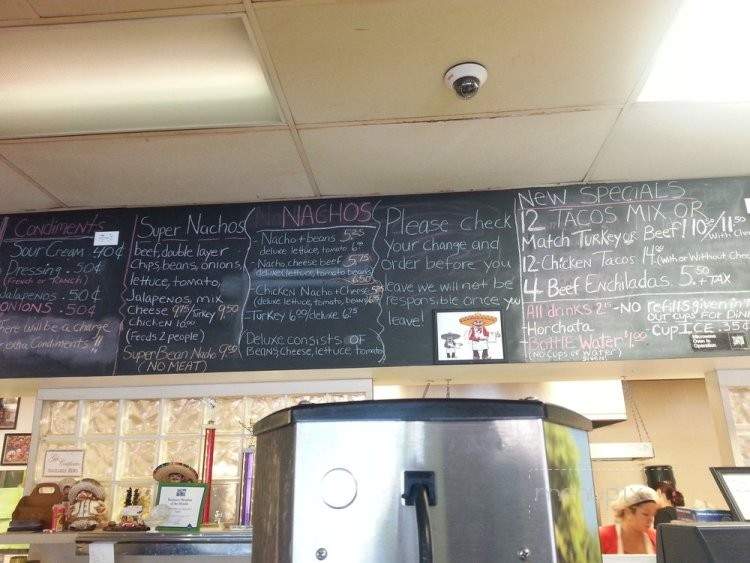 Condiments
Sour Cream 40¢
Dressing . 50¢
(French or Ranch)
Jalapenos .50¢
ONIONS .50¢
There will be a charge
extra Condiments!!
Super Nachos
beef, double layer
chips, beans, onions,
lettuce, tomato,
Jalapenos, mix
cheese 9.75/Turkey 9.50
chicken 10.00
(Feeds 2 people)
Super Bean Nacho 9.50
(NO MEAT)
NACHOS
- Nacho + beans 5.25
deluxe lettuce, tomato 6.00
- Nacho cheese beef 5.75
deluxe (lettuce, tomato, beans)
6.50
- Chicken Nacho + Cheese
(deluxe lettuce, tomato, beans)
- Turkey 6.00/deluxe 6.75
Deluxe consists OF
Beans, cheese, lettuce, tomato
Please check
your change and
order before you
leave we will not be
responsible once you
leave!
New SPECIALS
12 TACOS MIX OR
Match Turkey or Beef! 10.50/11.50
12 Chicken Tacos (with or Without Cheese
4 Beef Enchiladas 5.50 + TAX
All drinks 2.15 - NO refills given in
our cups FOR DINE
- Horchata
- Cup ICE .35¢
- Bottle Water $1.00
(NO CUPS OF WATER)